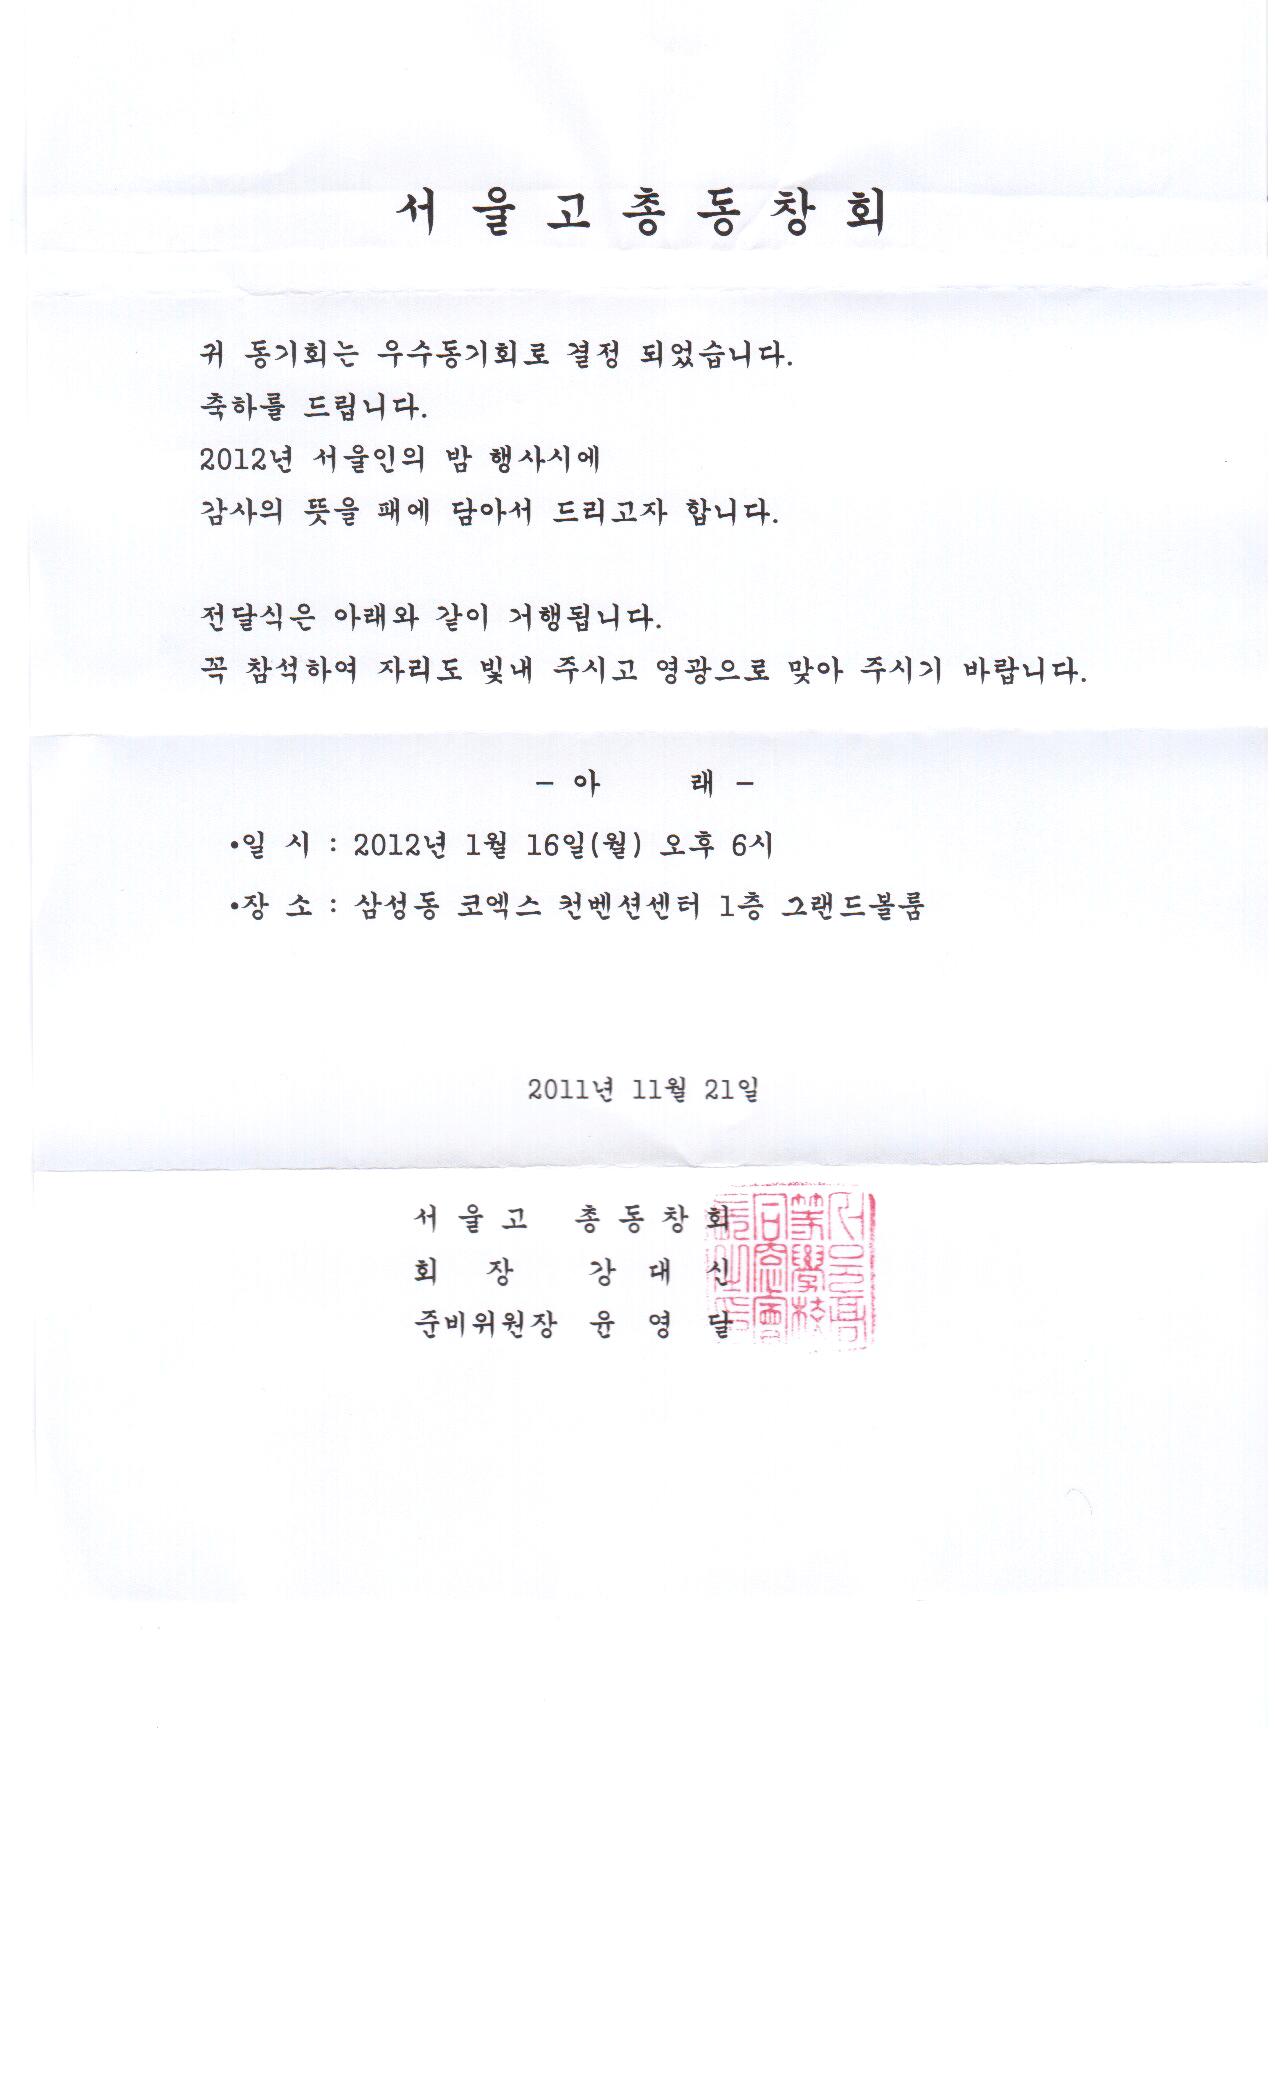 서 울 고 총 동 창 회
귀 동기회는 우수동기회로 결정 되었습니다.
축하를 드립니다.
2012년 서울인의 밤 행사시에
감사의 뜻을 패에 담아서 드리고자 합니다.
전달식은 아래와 같이 거행됩니다.
꼭 참석하여 자리도 빛내 주시고 영광으로 맞아 주시기 바랍니다.
- 아 래 -
•일 시 : 2012년 1월 16일(월) 오후 6시
•장 소 : 삼성동 코엑스 컨벤션센터 1층 그랜드볼룸
2011년 11월 21일
서 울 고 총 동 창 회
회 장 강 대 신
준비위원장 윤 영 달